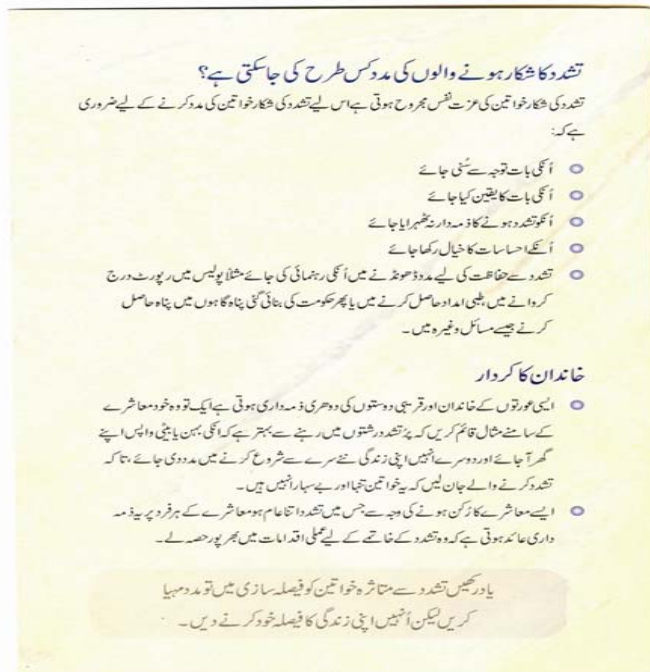 تشدد کا شکار ہونے والوں کی مدد کس طرح کی جاسکتی ہے؟
تشدد کی شکار خواتین کی عزت نفس مجروح ہوتی ہے اس لیے تشدد کی شکار خواتین کی مدد کرنے کے لیے ضروری
ہے کہ:
اُنکی بات توجہ سے سُنی جائے
اُنکی بات کا یقین کیا جائے
اُنکو تشدد ہونے کا ذمہ دار نہ ٹھہرایا جائے
اُنکے احساسات کا خیال رکھا جائے
تشدد سے حفاظت کی لیے مدد ڈھونڈنے میں اُنکی رہنمائی کی جائے مثلاً پولیس میں رپورٹ درج
کروانے میں، طبی امداد حاصل کرنے میں یا پھر حکومت کی بنائی گئی پناہ گاہوں میں پناہ حاصل
کرنے جیسے مسائل وغیرہ میں۔
خاندان کا کردار
ایسی عورتوں کے خاندان اور قریبی دوستوں کی دوھری ذمہ داری ہوتی ہے ایک تو وہ خود معاشرے
کے سامنے مثال قائم کریں کہ پُر تشدد رشتوں میں رہنے سے بہتر ہے کہ انکی بہن یا بیٹی واپس اپنے
گھر آ جائے اور دوسرے انہیں اپنی زندگی نئے سرے سے شروع کرنے میں مدد دی جائے، تا کہ
تشدد کرنے والے جان لیں کہ یہ خواتین تنہا اور بے سہارا نہیں ہیں۔
ایسے معاشرے کا رُکن ہونے کی وجہ سے جس میں تشدد اتنا عام ہو معاشرے کے ہر فرد پر یہ ذمہ
داری عائد ہوتی ہے کہ وہ تشدد کے خاتمے کے لیے عملی اقدامات میں بھر پور حصہ لے۔
یاد رکھیں تشدد سے متاثرہ خواتین کو فیصلہ سازی میں تو مدد مہیا
کریں لیکن اُنہیں اپنی زندگی کا فیصلہ خود کرنے دیں۔